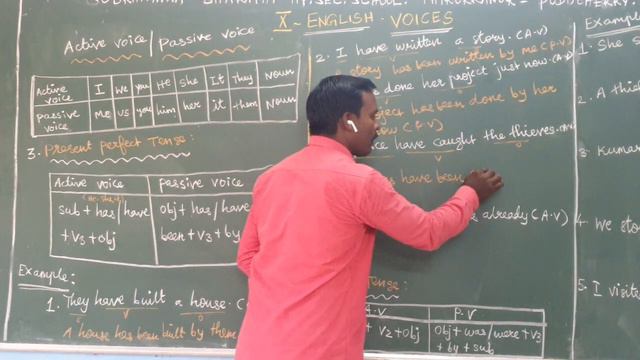 HR.SEC.SCHOOL.
X - ENGLISH - VOICES
Active voice / Passive voice
Active voice I we you He she It They Noun
passive voice Me us you him her it them Noun
3. Present perfect Tense:
Active voice passive voice
sub + has/have obj + has/have
+ v3 + obj been + v3 + by
Example:
1. They have built a house.
V O
A house has been built by them
2. I have written a story. (A.V)
story has been written by me (P.V)
done her project just now. (A.V)
has been done by her
now (P.V)
have caught the thieves.
V O
have been
already (A.V)
Tense:
A.V P.V
+ v2 + obj obj + was/were + v3
+ by + sub
Example:
1. She
2. A thick
3. Kumar
4. We
5. I